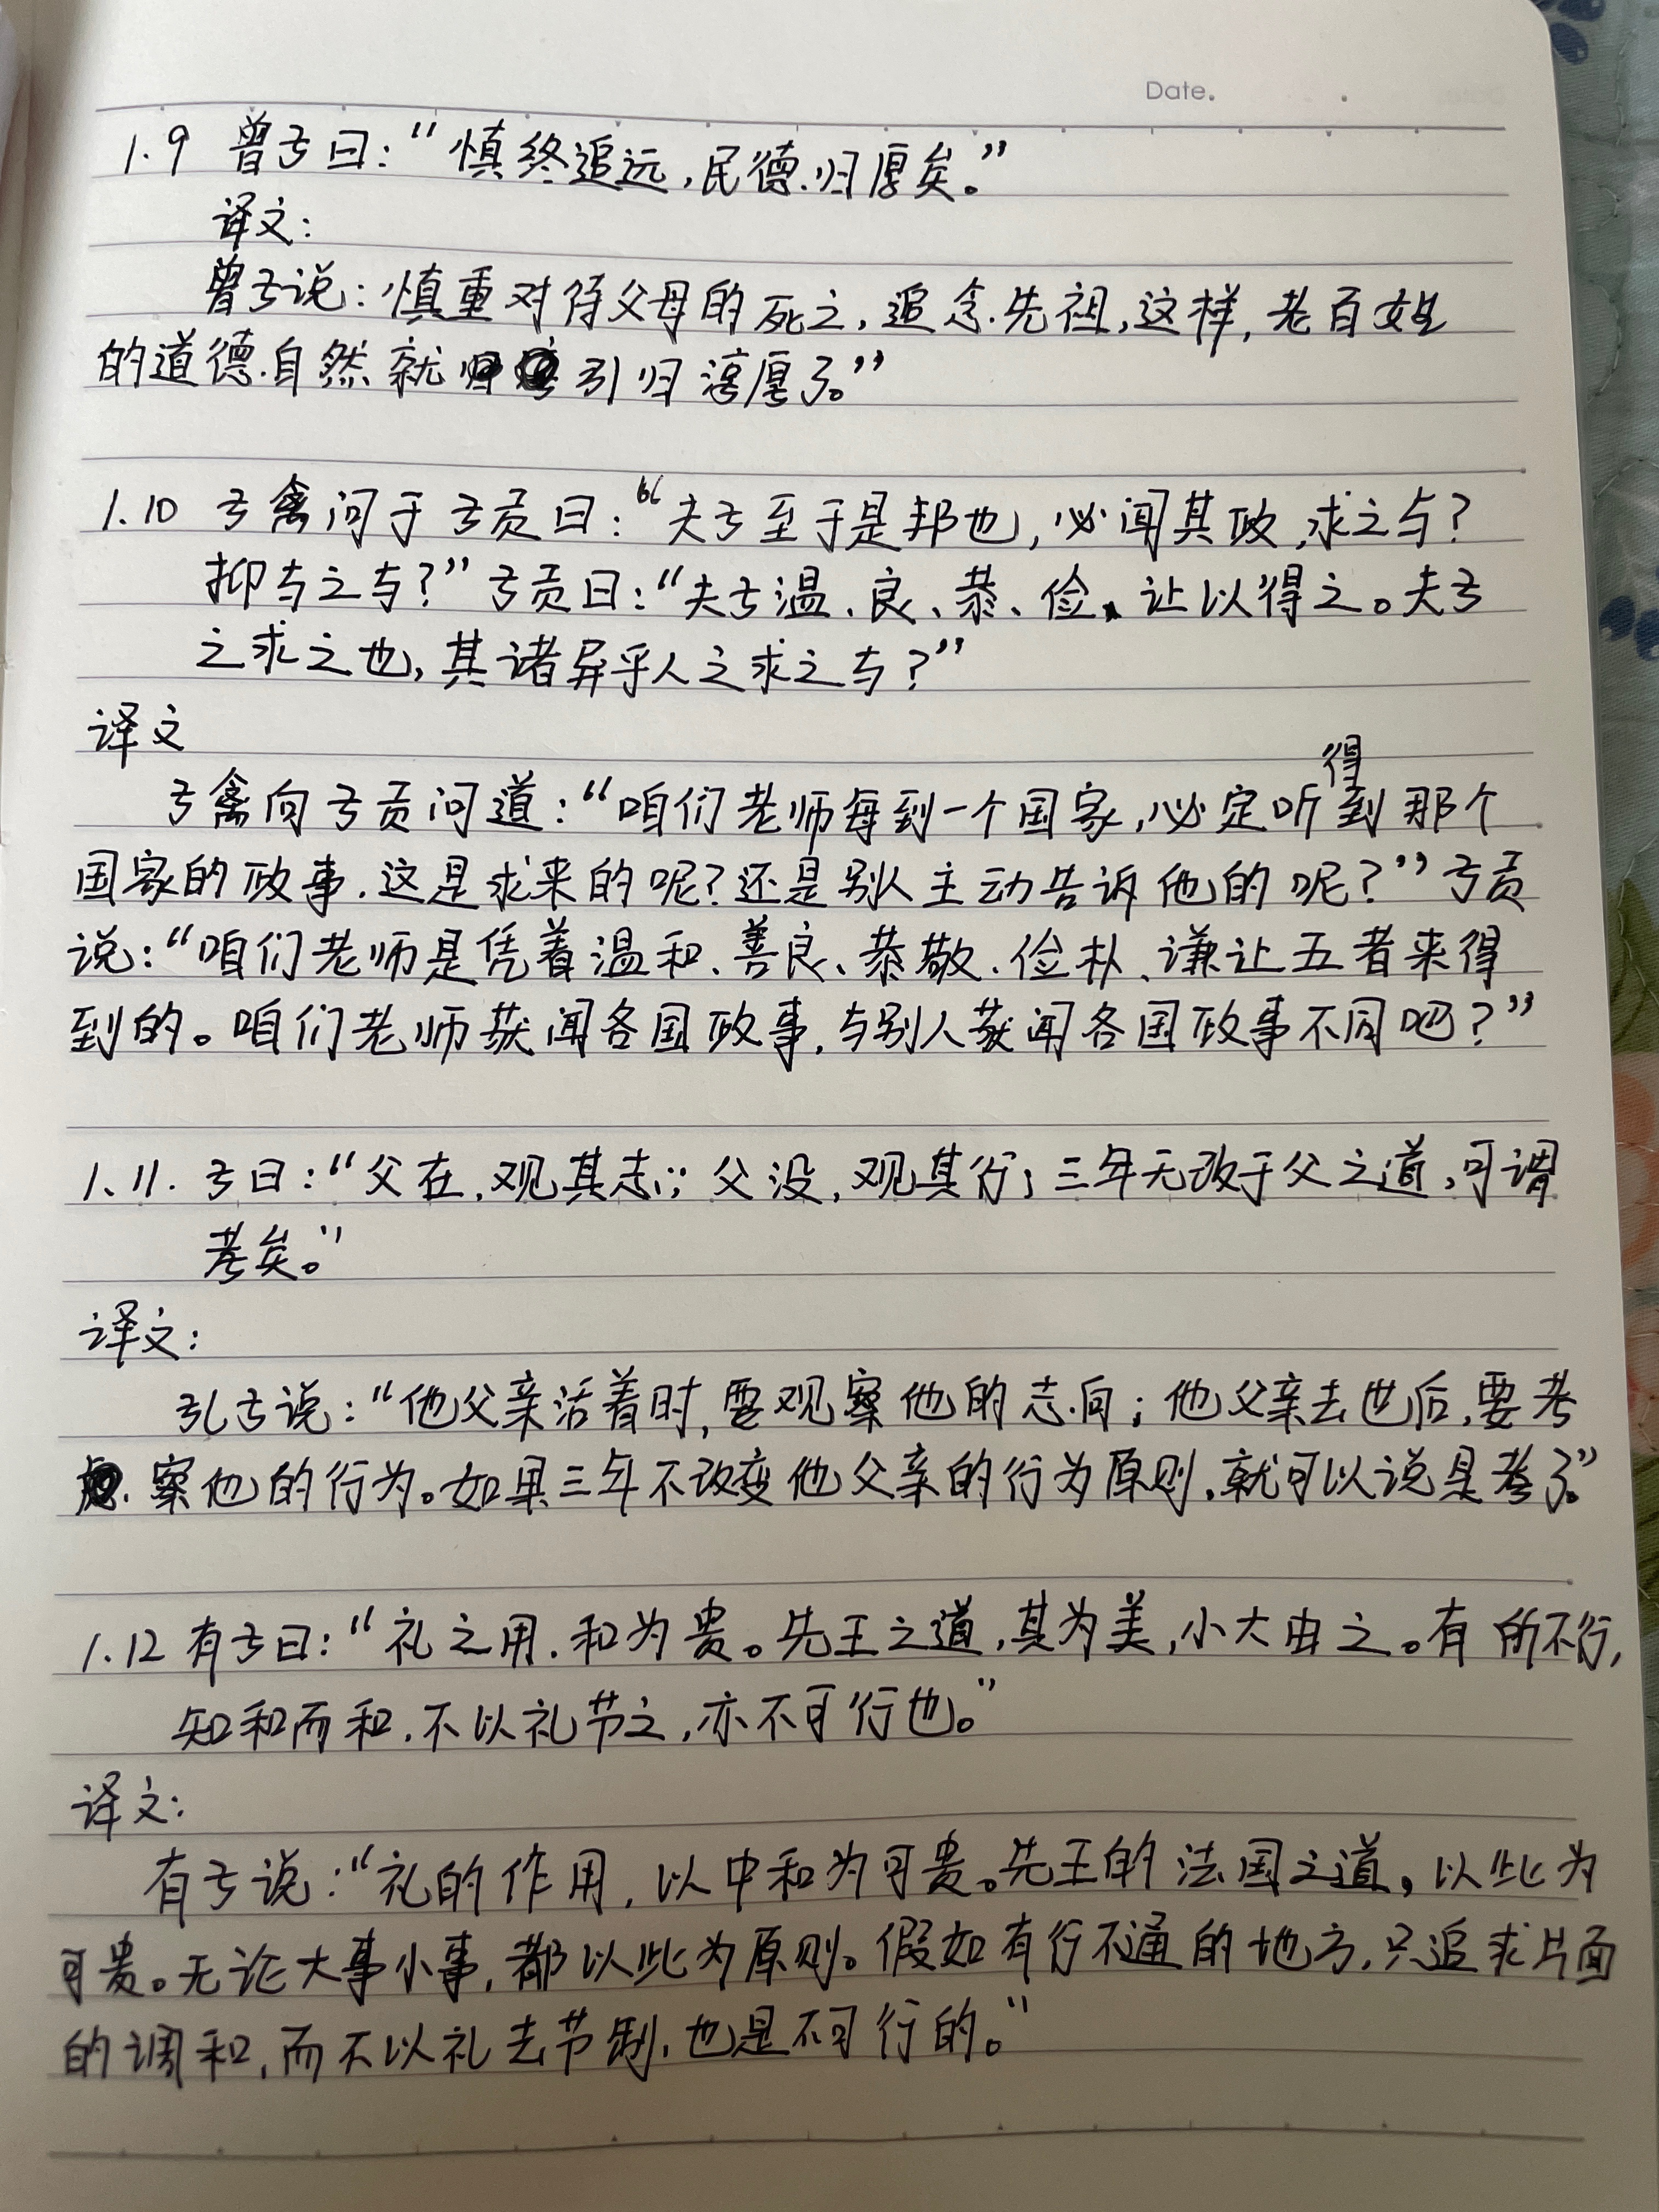 Date.
1.9 曾子曰：“慎终追远，民德归厚矣。”
译文：
曾子说：慎重对待父母的死亡，追念先祖，这样，老百姓
的道德自然就引归淳厚了。”
1.10 子禽问于子贡曰：“夫子至于是邦也，必闻其政，求之与？
抑与之与？”子贡曰：“夫子温、良、恭、俭、让以得之。夫子
之求之也，其诸异乎人之求之与？”
译文
得
子禽向子贡问道：“咱们老师每到一个国家，必定听到那个
国家的政事，这是求来的呢？还是别人主动告诉他的呢？”子贡
说：“咱们老师是凭着温和、善良、恭敬、俭朴、谦让五者来得
到的。咱们老师获闻各国政事，与别人获闻各国政事不同吧？”
1.11. 子曰：“父在，观其志；父没，观其行；三年无改于父之道，可谓
孝矣。”
译文：
孔子说：“他父亲活着时，要观察他的志向；他父亲去世后，要考
察他的行为。如果三年不改变他父亲的行为原则，就可以说是孝了。”
1.12 有子曰：“礼之用，和为贵。先王之道，其为美，小大由之。有所不行，
知和而和，不以礼节之，亦不可行也。”
译文：
有子说：“礼的作用，以中和为可贵。先王的法国之道，以此为
可贵。无论大事小事，都以此为原则。假如有行不通的地方，只追求片面
的调和，而不以礼去节制，也是不可行的。”